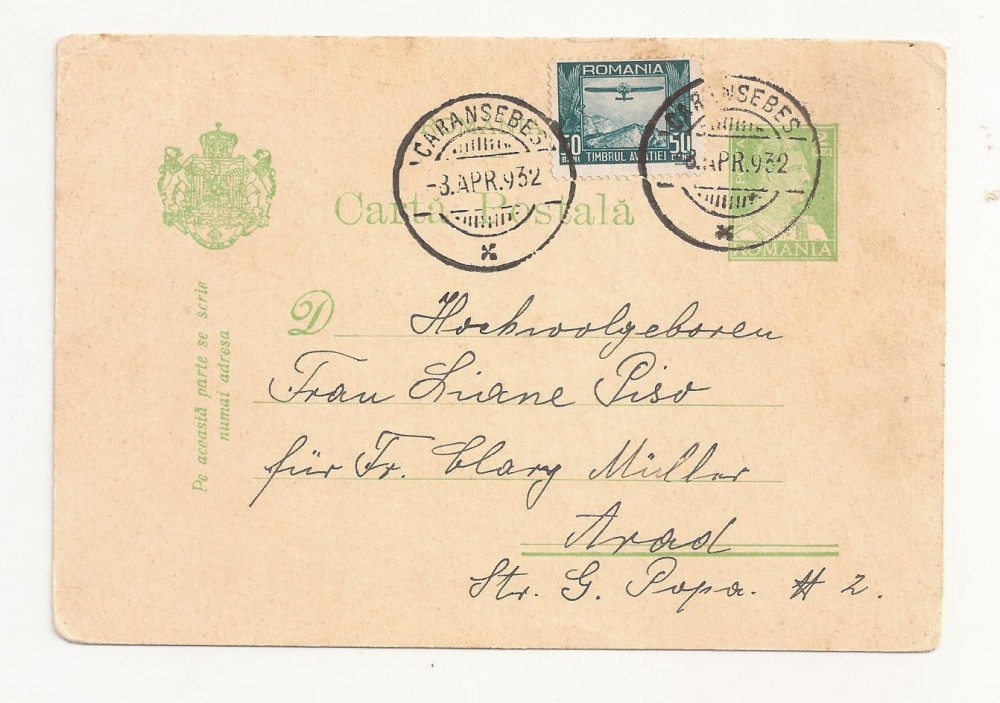 ROMANIA
50 BANI TIMBRUL AVIAȚIEI 50 BANI
CARANSEBEȘ
-3.APR.932
CARANSEBEȘ
-3.APR.932
LEI
ROMANIA
Cartă Postală
Pe această parte se scrie
numai adresa
D Hochwolgeboren
Frau Liane Piso
für Fr. Clary Müller
Arad
Str. G. Popa. # 2.